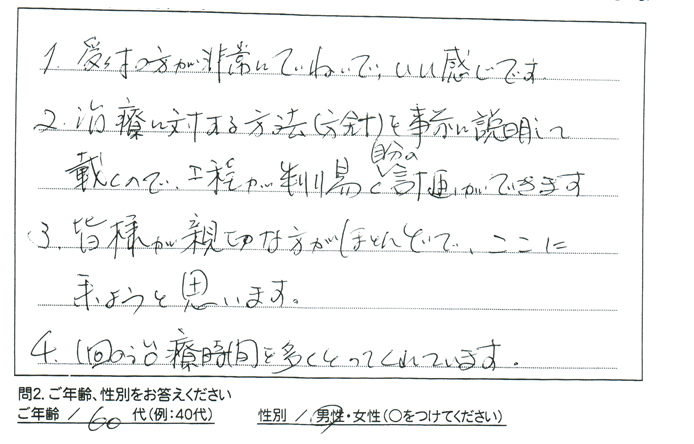 1. 受付の方が非常にていねいで、いい感じです
2. 治療に対する方法(方針)を事前に説明して
載くので、工程が判り易く自分の計画ができます
3. 皆様が親切な方がほとんどで、ここに
来ようと思います。
4. 1回の治療時間を多くとってくれています。
問2. ご年齢、性別をお答えください
ご年齢 / 60 代(例:40代) 性別 / 男性・女性(○をつけてください)